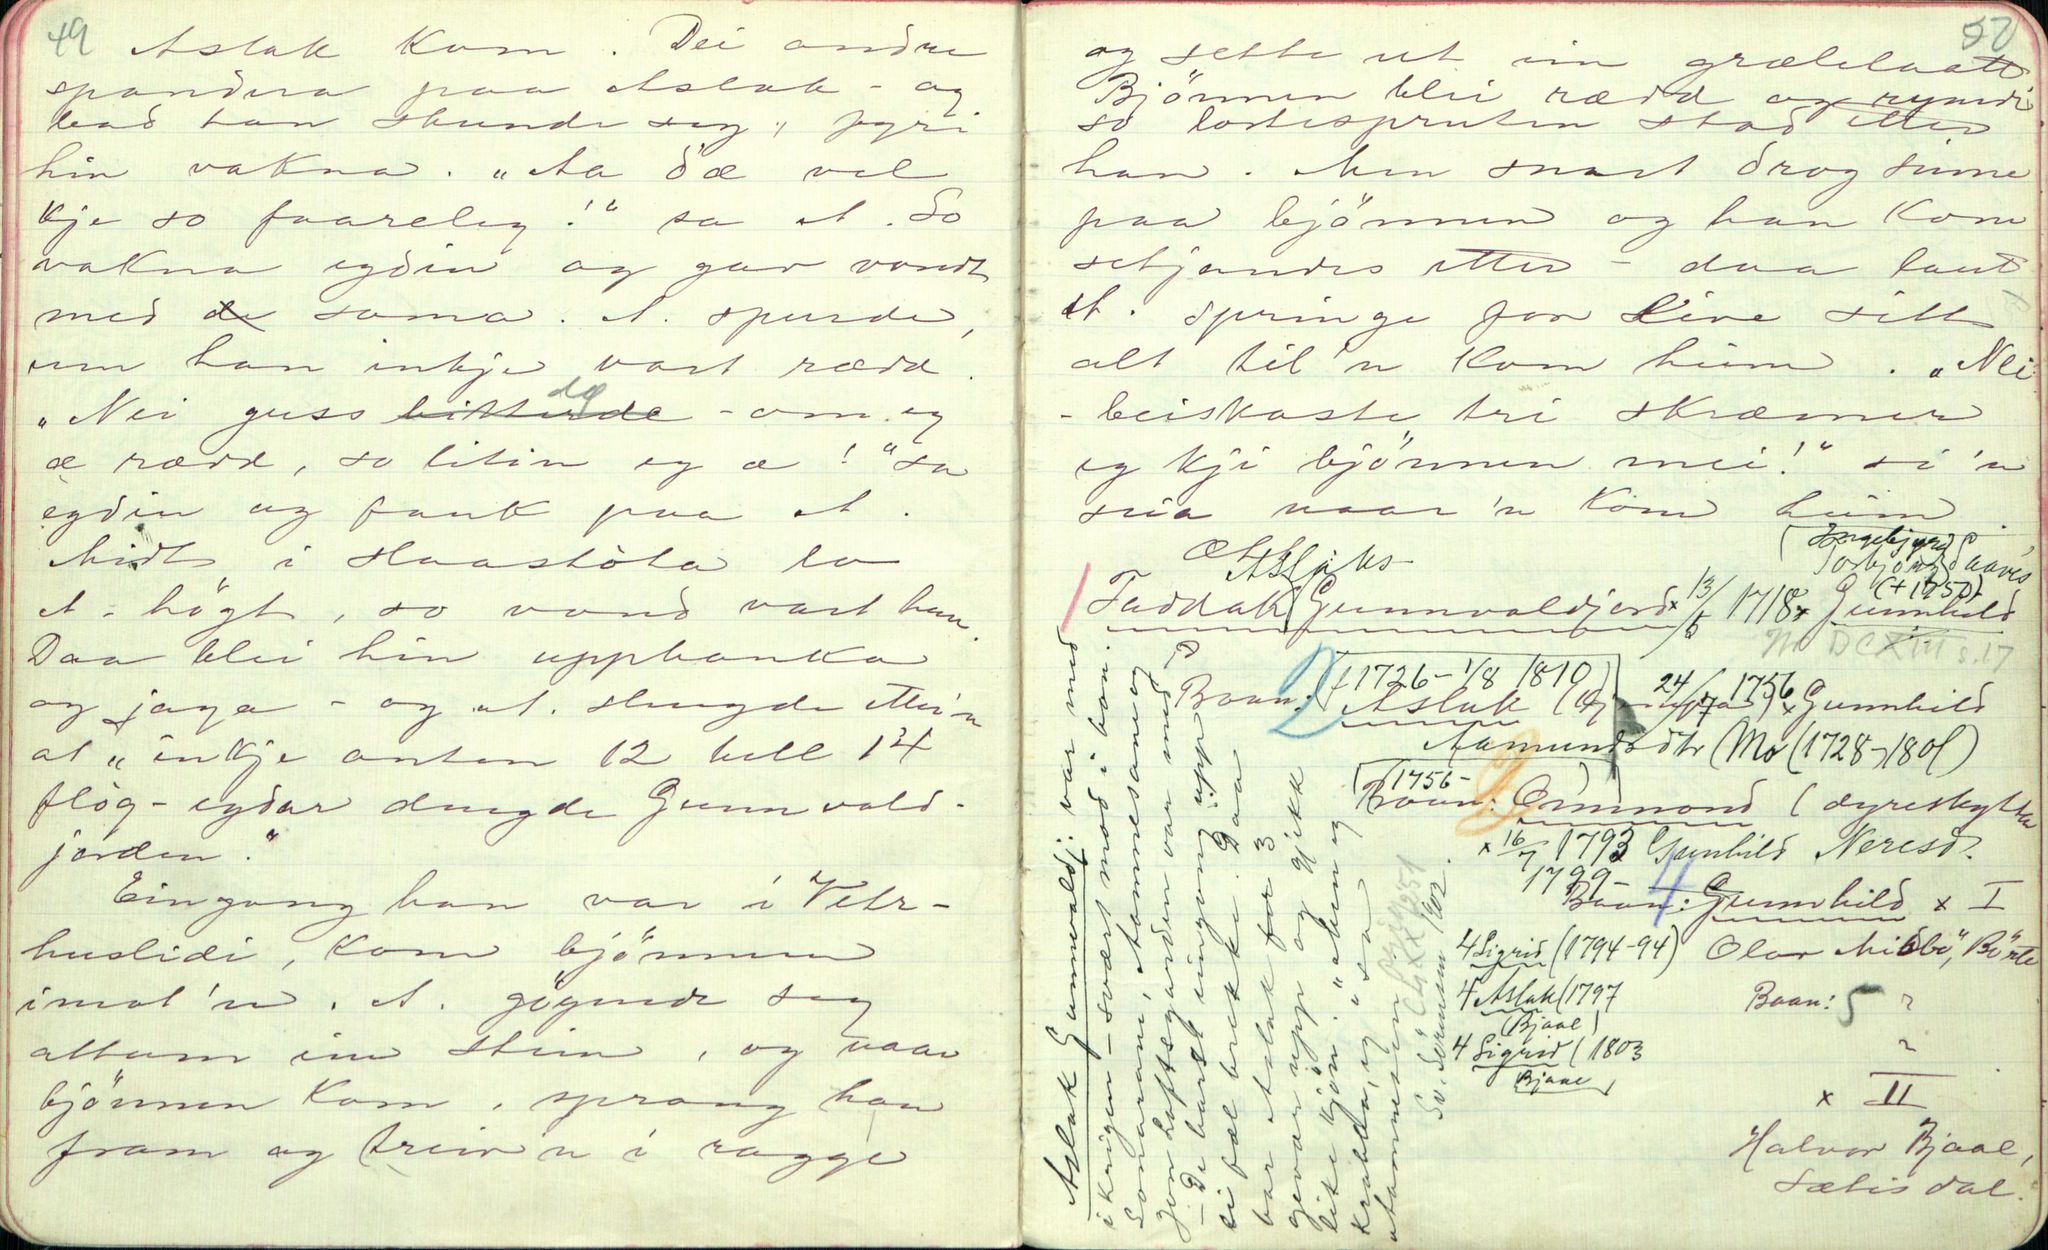 49
Aslak kom. Dei andre
spandera paa Aslak - og
bad han skunde seg, fyri
hin vakna. „Aa d'æ vel
kje so faareleg!" sa A. So
vakna egdin og gav vondt
med de sama. A. spurde,
um han inkje vart rædd.
„Nei guss - om eg
æ rædd, so liten eg æ!" sa
egdin og fauk paa A.
Midt i slaastöta lo
A. högt, so vond vart han.
Daa blei hin uppbanka
og jaga - og A. slengde etter'n
at „inkje anten 12 hell 14
flög-egdar dengde Gunnvald-
jorden."
Eingong han var i Vetr-
huslidi, kom bjönnen
imot'n. A. göymde seg
attum ein stein, og naar
bjönnen kom, sprang han
fram og treiv'n i ragge
50
og sette ut ein græleleatt
Bjönnen blei rædd og rymde
so lortespruten stod etter
han. Men snart drog sinne
paa bjönnen og han kom
setjandes etter - daa laut
A. springe for live sitt
alt til'n kom heim. „Nei
- beiskaste tri skræmer
eg kji bjönnen mei!" si'n
sia naar'n kom heim.
Ætt
Aslaks-
Taddak Gunnvaldjord x 13/6 1718 x Gunnhild
Ingebjörg
Torbjörg
(+ 1750)
M. DCXIII s. 17
(1726 - 1/8 1810)
2 Boan: Aslak 24/7 1756 x Gunnhild
Aamundsdtr (Mo (1728-1801)
1756-
Boan: Ommond (dyreskyttar
x 16/7 1793 Gunhild Neresd.
1799-
Boan: 4 Gunnhild x I
Olav Midbö, Börte
4 Sigrid (1794-94)
4 Aslak (1797
(Bjaae)
4 Sigrid (1803
Bjaae
Boan: 5 ?
?
x II
Halvor Bjaae,
Sætisdal.
Aslak Gunnvaldj. var med
i krigen - svært mod i han.
Jon Loftsgarden var med
- De barst eingong uppe
ei fæl brekke. Daa
bar Aslak for 3
gevær upp og gjekk
like kjön. „Men eg
krabba, eg" sa
stamnesingen
Sv. Sörensen 1902.